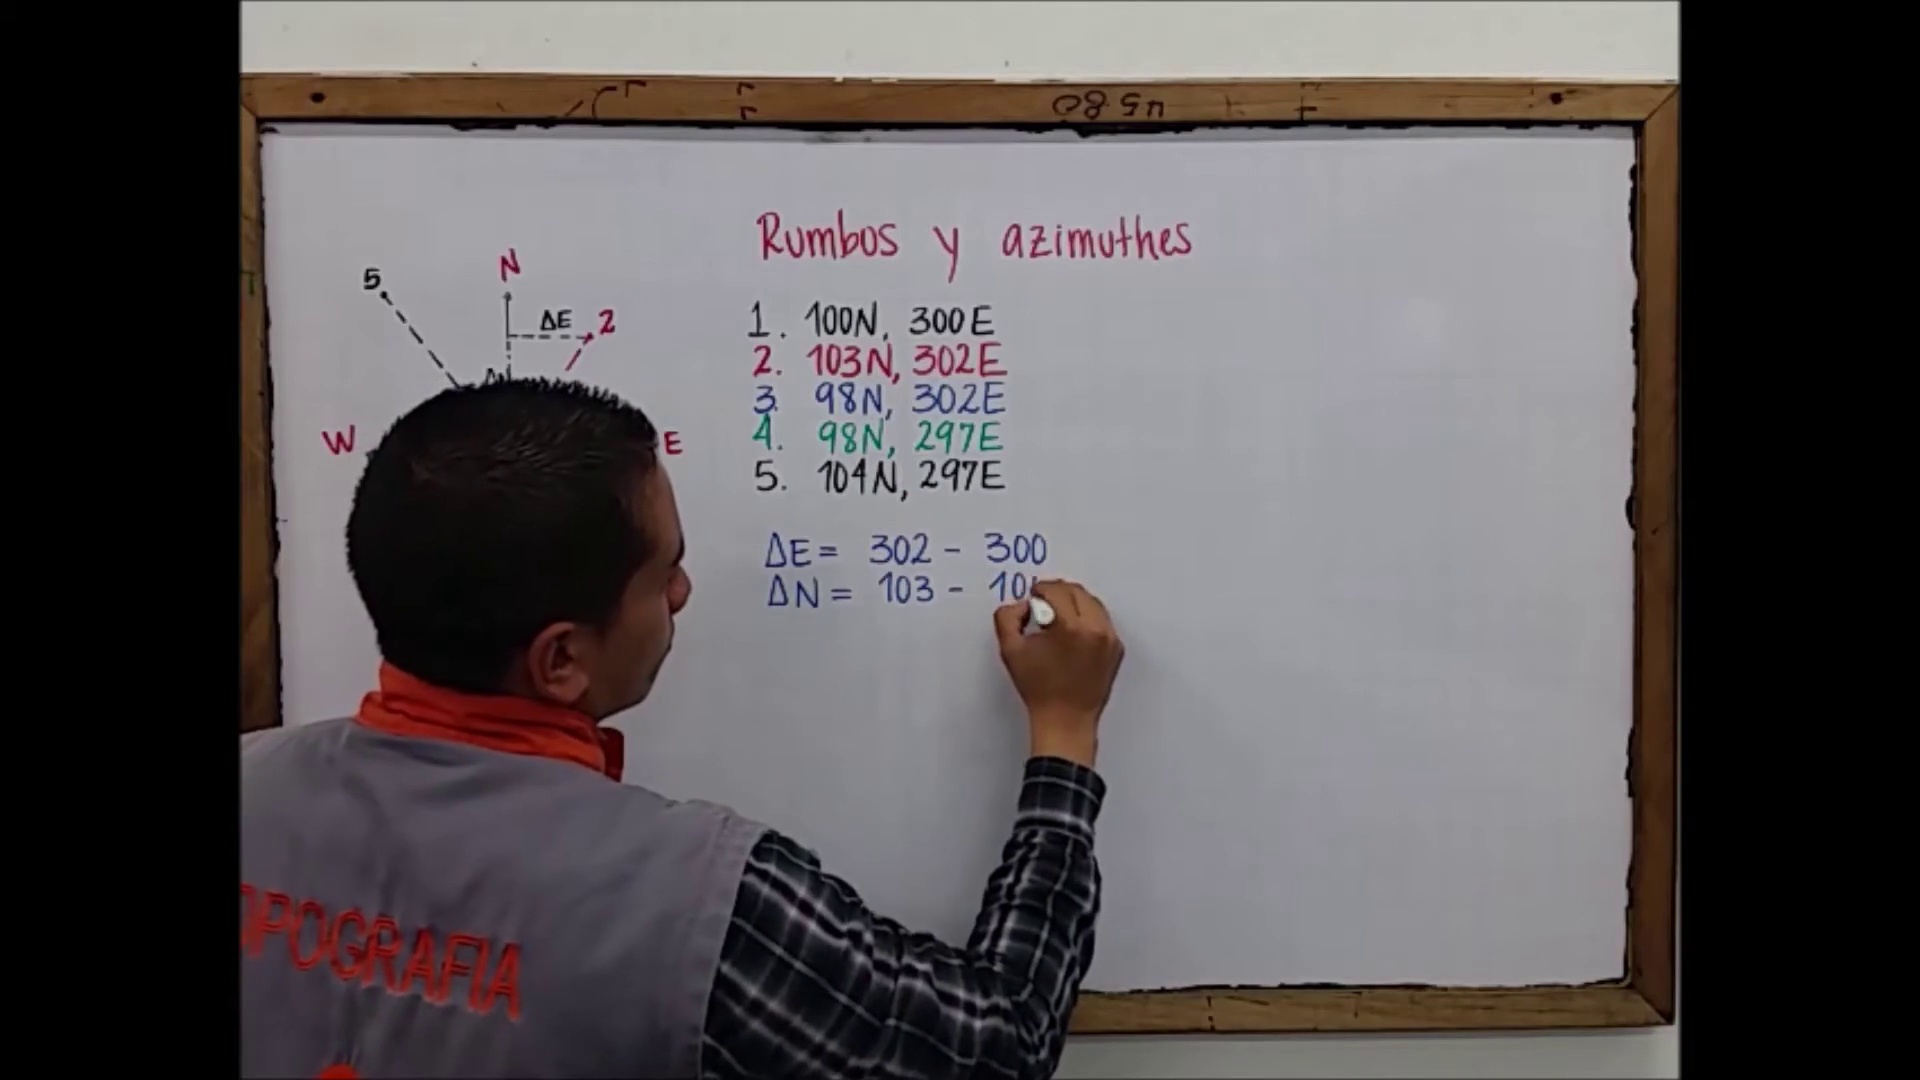 Rumbos y azimuthes
5
N
ΔE
2
W
E
1. 100N, 300E
2. 103N, 302E
3. 98N, 302E
4. 98N, 297E
5. 104N, 297E
ΔE = 302 - 300
ΔN = 103 - 10
OPOGRAFIA